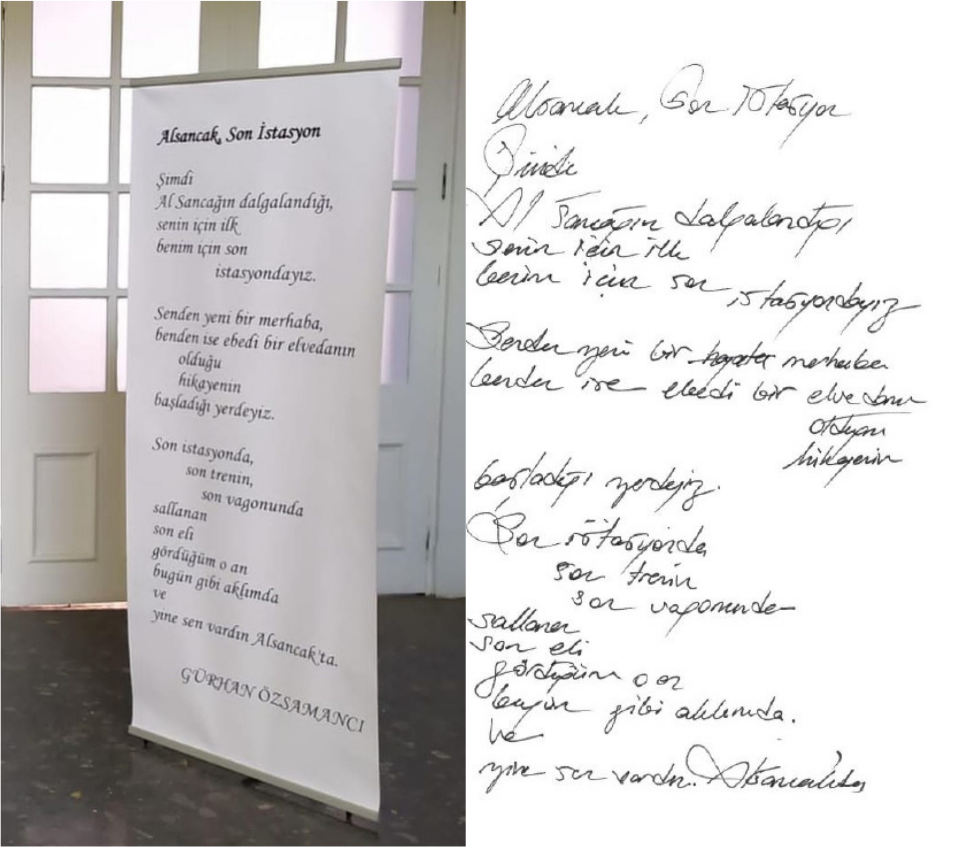 Alsancak, Son İstasyon
Şimdi
Al Sancağın dalgalandığı,
senin için ilk
benim için son
istasyondayız.
Senden yeni bir merhaba,
benden ise ebedi bir elvedanın
olduğu
hikayenin
başladığı yerdeyiz.
Son istasyonda,
son trenin,
son vagonunda
sallanan
son eli
gördüğüm o an
bugün gibi aklımda
ve
yine sen vardın Alsancak'ta.
GÜRHAN ÖZSAMANCI
Alsancak, Son İstasyon
Şimdi
Al Sancağın dalgalandığı
senin için ilk
benim için son
istasyondayız
Senden yeni bir hayata merhaba
benden ise ebedi bir elvedanın
olduğu
hikayenin
başladığı yerdeyiz.
Son istasyonda
son trenin
son vagonunda
sallanan
son eli
gördüğüm o an
bugün gibi aklımda.
ve
yine sen vardın Alsancak'ta